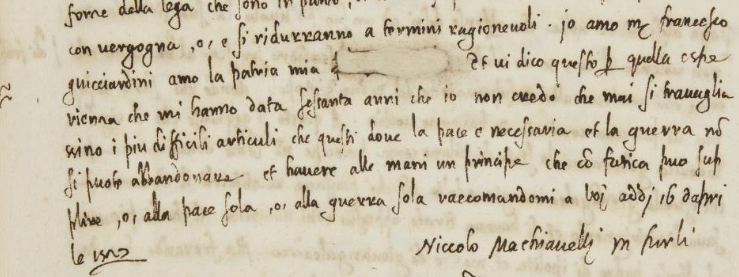 forze della lega che sono in punto,
con vergogna, o, e si ridurranno a termini ragionevoli. jo amo mẽ francesco
guicciardini amo la patria mia Et vi dico questo ꝑ quella espe
rienza che mi hanno data sessanta anni che io non credo che mai si travaglia
ssino i piu difficili articuli che questi dove la pace e necessaria et la guerra nō
si puote abbandonare et havere alle mani un principe che cō fatica puo sup
plire, o, alla pace sola, o, alla guerra sola raccomandomi a voj addj 16 dapri
le 1527 Niccolo Machiavellj in furlì